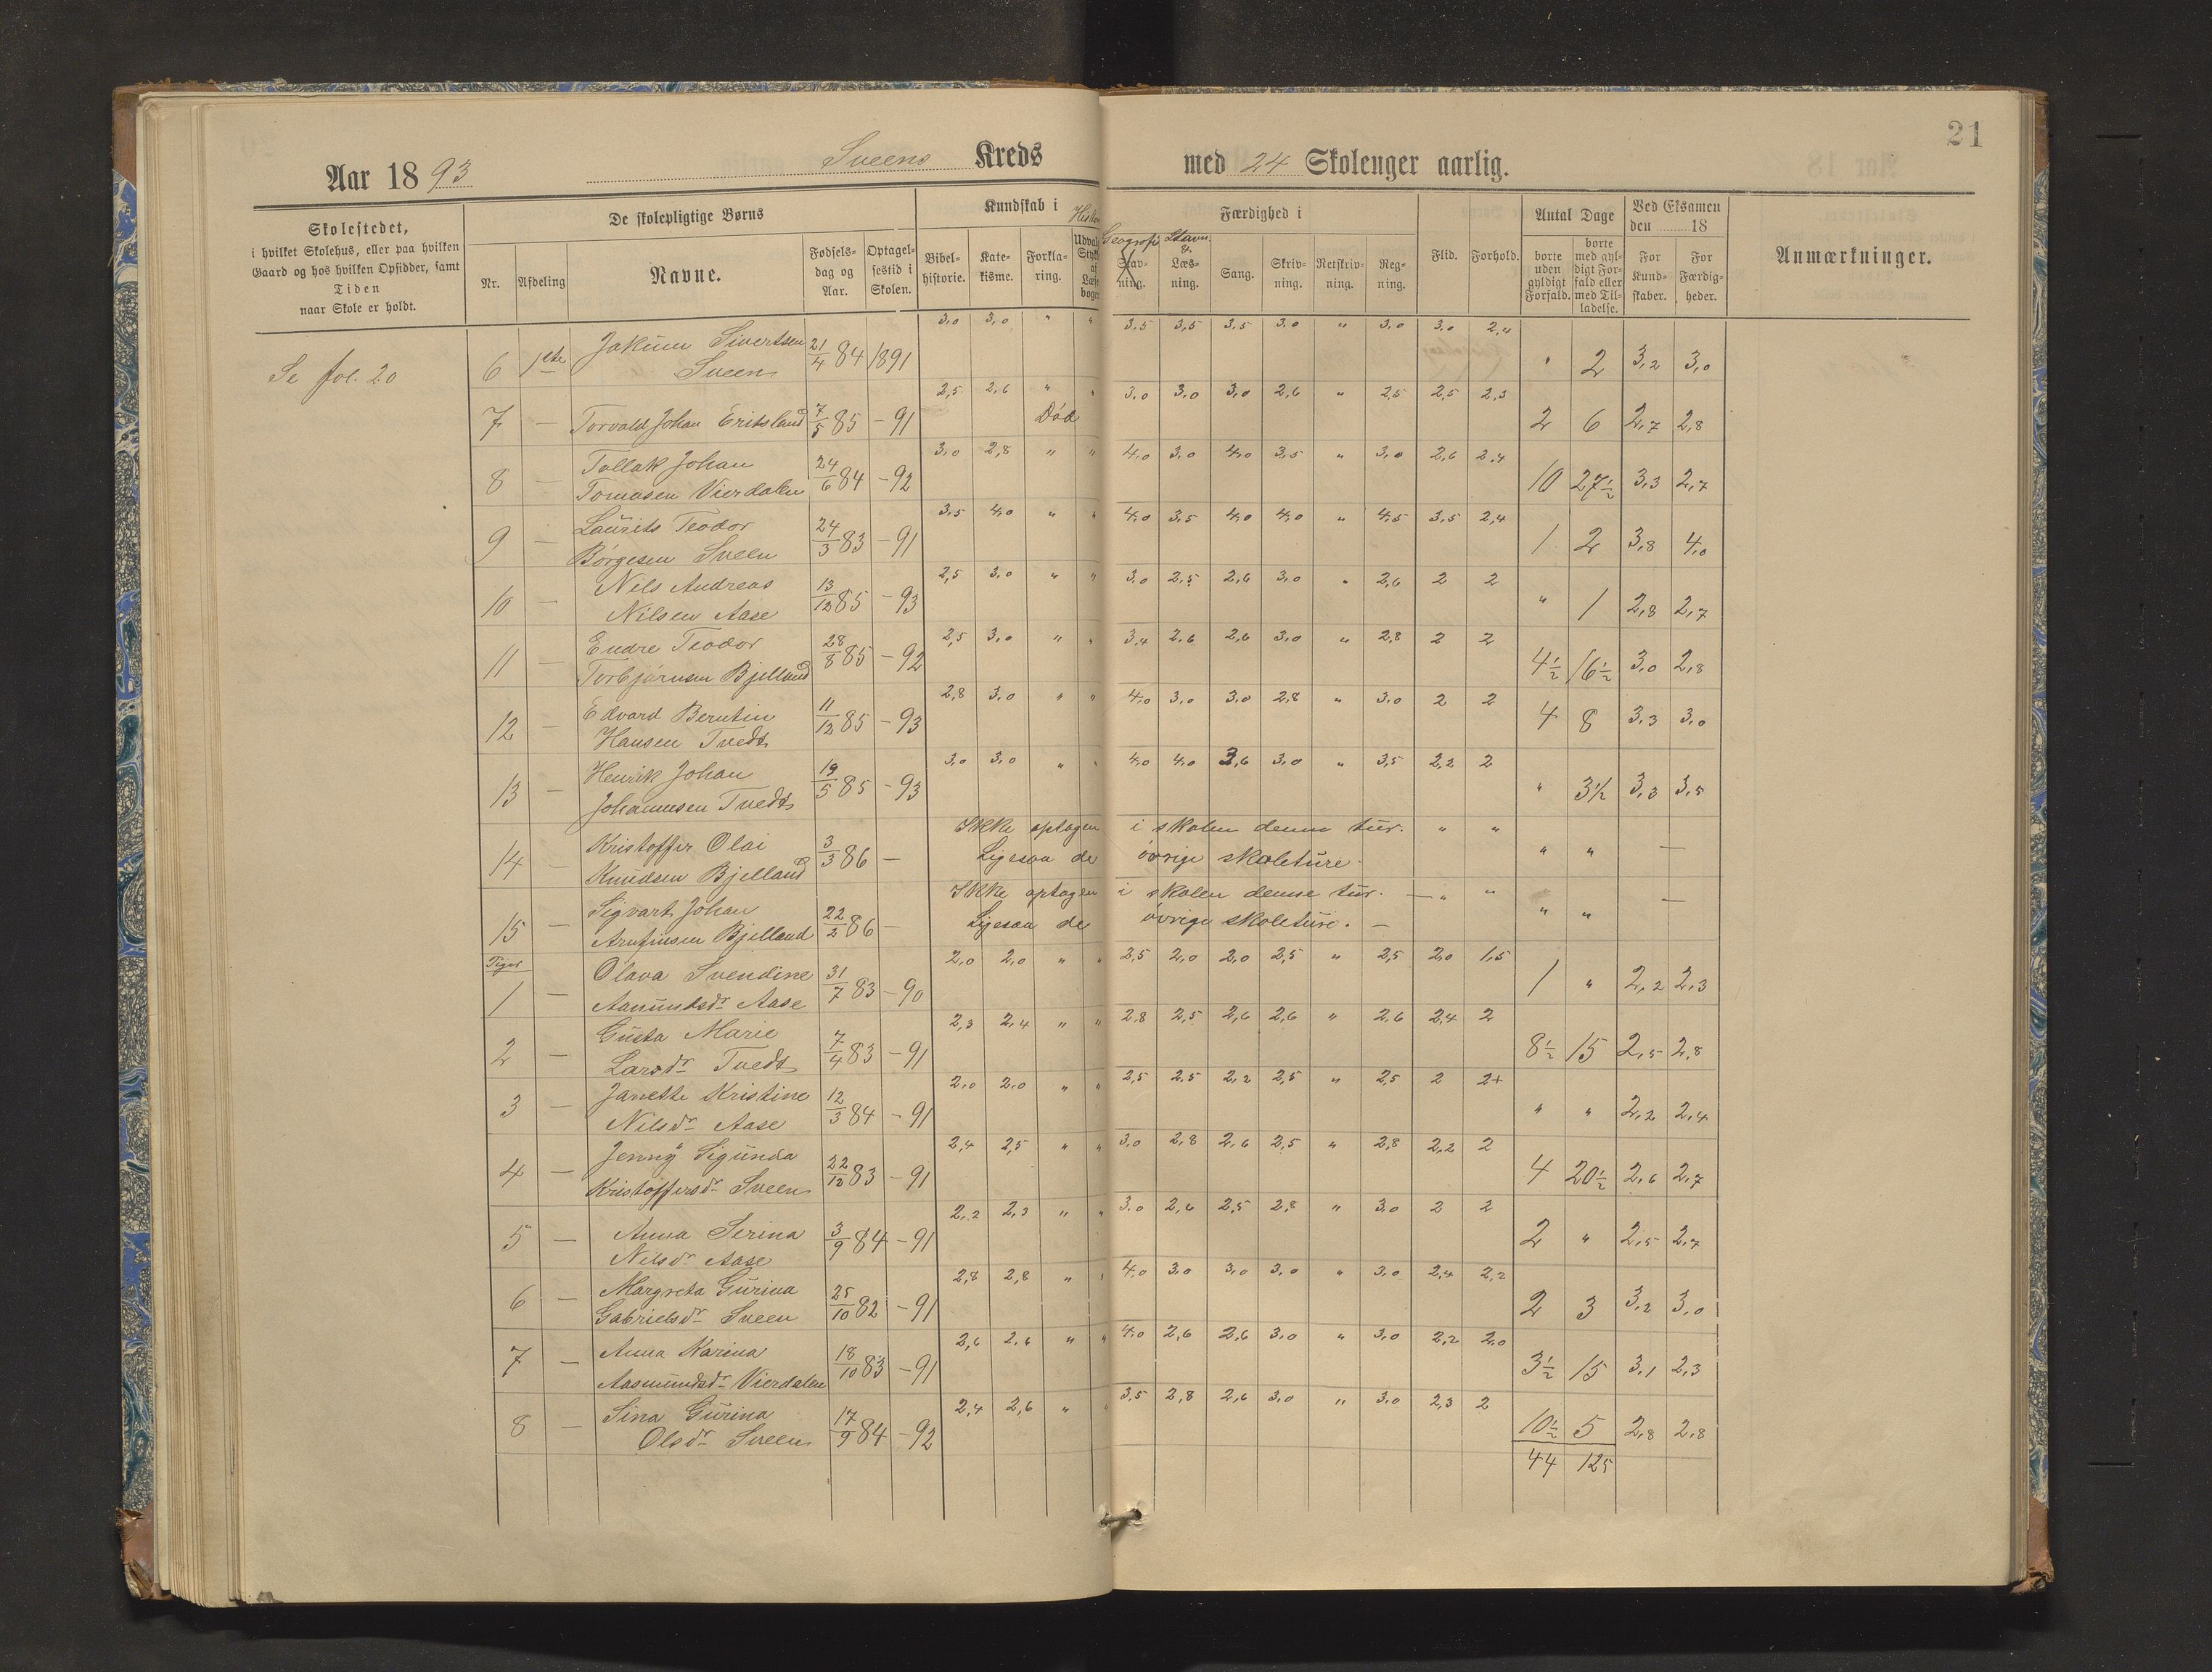 21
Aar 1893 Sveens Kreds med 24 Skolenger aarlig.
Skolestedet,
i hvilket Skolehus, eller paa hvilken
Gaard og hos hvilken Opsidder, samt
Tiden
naar Skole er holdt.
De skolepligtige Børns
Nr.
Afdeling
Navne.
Fødsels-
dag og
Aar.
Optagel-
sestid i
Skolen.
Kundskab i
Bibel-
historie.
Kate-
kisme.
Forkla-
ring.
Færdighed i
Geografi
Stav-
ning.
Stavn. &
Læs-
ning.
Sang.
Skriv-
ning.
Retskriv-
ning.
Reg-
ning.
Flid.
Forhold.
Antal Dage
borte
uden
gyldigt
Forfald.
borte
med gyl-
digt For-
fald eller
med Til-
ladelse.
Ved Eksamen
den 18
For
Kund-
skaber.
For
Færdig-
heder.
Anmærkninger.
Se fol. 20
6 1ste Jakum Sivertsen Sveen 21/4 84 1891 3,0 3,0 " " 3,5 3,5 3,5 3,0 " 3,0 3,0 " 2 3,2 3,0
7 — Torvald Johan Eritsland 7/5 85 - 91 2,5 2,6 " " Död 3,0 3,0 3,0 2,6 " 2,5 2,5 2,3 2 6 2,7 2,8
8 — Tollak Johan Tomasen Vierdalen 24/6 84 - 92 3,0 2,8 " " 4,0 3,0 4,0 3,5 " 3,0 2,6 2,4 10 27½ 3,3 2,7
9 — Laurits Teodor Börgesen Sveen 24/3 83 - 91 3,5 4,0 " " 4,0 3,5 4,0 4,0 " 4,5 3,5 2,4 1 2 3,8 4,0
10 — Nils Andreas Nilsen Aase 13/12 85 - 93 2,5 3,0 " " 3,0 2,5 2,6 3,0 " 2,6 2 2 " 1 2,8 2,7
11 — Endre Teodor Torbjörnsen Bjelland 28/8 85 - 92 2,5 3,0 " " 3,4 2,6 2,6 3,0 " 2,8 2 2 4½ 16½ 3,0 2,8
12 — Edvard Berntin Hansen Tvedt 11/12 85 - 93 2,8 3,0 " " 4,0 3,0 3,0 2,8 " 3,0 2 2 4 8 3,3 3,0
13 — Henrik Johan Johannesen Tvedt 19/5 85 - 93 3,0 3,0 " " 4,0 4,0 3,6 3,0 " 3,5 2,2 2 " 3½ 3,3 3,5
14 — Kristoffer Olai Knudsen Bjelland 3/3 86 — Ikke optagen i skolen denne tur. " " " " —
Ligesaa de övrige skoleture.
15 — Sigvart Johan Arnfinsen Bjelland 22/2 86 — Ikke optagen i skolen denne tur. — " " " " —
Ligesaa de övrige skoleture. —
Piger
1 — Olava Svendine Aamundsdr. Aase 31/7 83 - 90 2,0 2,0 " " 2,5 2,0 2,0 2,5 " 2,5 2,0 1,5 1 " 2,2 2,3
2 — Gusta Marie Larsdr. Tvedt 7/4 83 - 91 2,3 2,4 " " 2,8 2,5 2,6 2,6 " 2,6 2,4 2 8½ 15 2,5 2,8
3 — Janette Kristine Nilsdr. Aase 12/3 84 - 91 2,0 2,0 " " 2,5 2,5 2,2 2,5 " 2,5 2 2+ " " 2,2 2,4
4 — Jenny Sigunda Kristoffersdr. Sveen 22/12 83 - 91 2,4 2,5 " " 3,0 2,8 2,6 2,5 " 2,8 2,2 2 4 20½ 2,6 2,7
5 — Anna Serina Nilsdr. Aase 3/9 84 - 91 2,2 2,3 " " 3,0 2,6 2,5 2,8 " 3,0 2 2 2 " 2,5 2,7
6 — Margreta Gurina Gabrielsdr. Sveen 25/10 82 - 91 2,8 2,8 " " 4,0 3,0 3,0 3,0 " 3,0 2,4 2,2 2 3 3,2 3,0
7 — Anna Karina Aasmundsdr. Vierdalen 18/10 83 - 91 2,6 2,6 " " 4,0 2,6 2,6 3,0 " 3,0 2,2 2,0 3½ 15 3,1 2,3
8 — Sina Gurina Olsdr. Sveen 17/9 84 - 92 2,4 2,6 " " 3,5 2,8 2,6 3,0 " 3,0 2,3 2 10½ 5 2,8 2,8
44 125